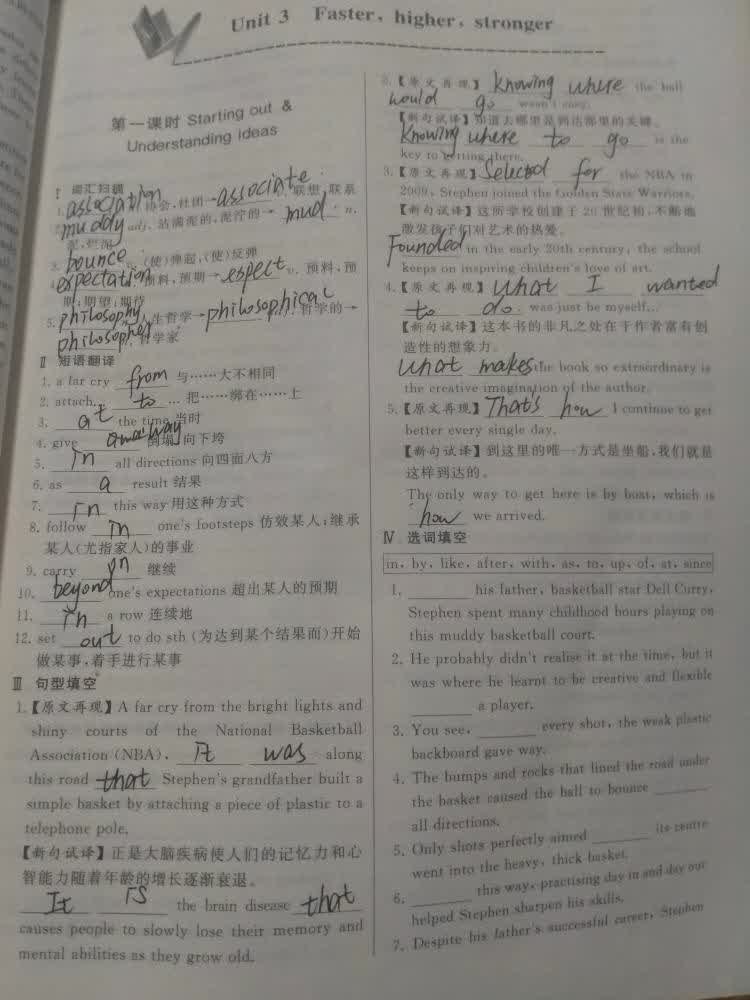 Unit 3 Faster, higher, stronger
第一课时 Starting out &
Understanding ideas
Ⅰ 词汇扫描
1. association 协会,社团→associate 联想,联系
2. muddy adj. 沾满泥的,泥泞的→ mud n.
泥,烂泥
3. bounce v. (使)弹起,(使)反弹
4. expectation 预料,预期→espect v. 预料,预
期;期望;期待
5. philosophy 人生哲学→philosophical 哲学的→
philosopher 哲学家
Ⅱ 短语翻译
1. a far cry from 与……大不相同
2. attach... to ... 把……绑在……上
3. at the time 当时
4. give away 倒塌,向下垮
5. in all directions 向四面八方
6. as a result 结果
7. in this way 用这种方式
8. follow in one's footsteps 仿效某人;继承
某人(尤指家人)的事业
9. carry on 继续
10. beyond one's expectations 超出某人的预期
11. in a row 连续地
12. set out to do sth (为达到某个结果而)开始
做某事,着手进行某事
Ⅲ 句型填空
1.【原文再现】A far cry from the bright lights and
shiny courts of the National Basketball
Association (NBA), It was along
this road that Stephen's grandfather built a
simple basket by attaching a piece of plastic to a
telephone pole.
【新句试译】正是大脑疾病使人们的记忆力和心
智能力随着年龄的增长逐渐衰退。
It is the brain disease that
causes people to slowly lose their memory and
mental abilities as they grow old.
2.【原文再现】Knowing where the ball
would go wasn't easy.
【新句试译】知道去哪里是到达那里的关键。
Knowing where to go is the
key to getting there.
3.【原文再现】Selected for the NBA in
2009, Stephen joined the Golden State Warriors.
【新句试译】这所学校创建于20世纪初,不断地
激发孩子们对艺术的热爱。
Founded in the early 20th century, the school
keeps on inspiring children's love of art.
4.【原文再现】What I wanted
to do was just be myself...
【新句试译】这本书的非凡之处在于作者富有创
造性的想象力。
What makes the book so extraordinary is
the creative imagination of the author.
5.【原文再现】That's how I continue to get
better every single day.
【新句试译】到这里的唯一方式是坐船,我们就是
这样到达的。
The only way to get here is by boat, which is
how we arrived.
Ⅳ 选词填空
in, by, like, after, with, as, to, up, of, at, since
1. ______ his father, basketball star Dell Curry,
Stephen spent many childhood hours playing on
this muddy basketball court.
2. He probably didn't realise it at the time, but it
was where he learnt to be creative and flexible
______ a player.
3. You see, ______ every shot, the weak plastic
backboard gave way.
4. The bumps and rocks that lined the road under
the basket caused the ball to bounce ______
all directions.
5. Only shots perfectly aimed ______ its centre
went into the heavy, thick basket.
6. ______ this way, practising day in and day out
helped Stephen sharpen his skills.
7. Despite his father's successful career, Stephen